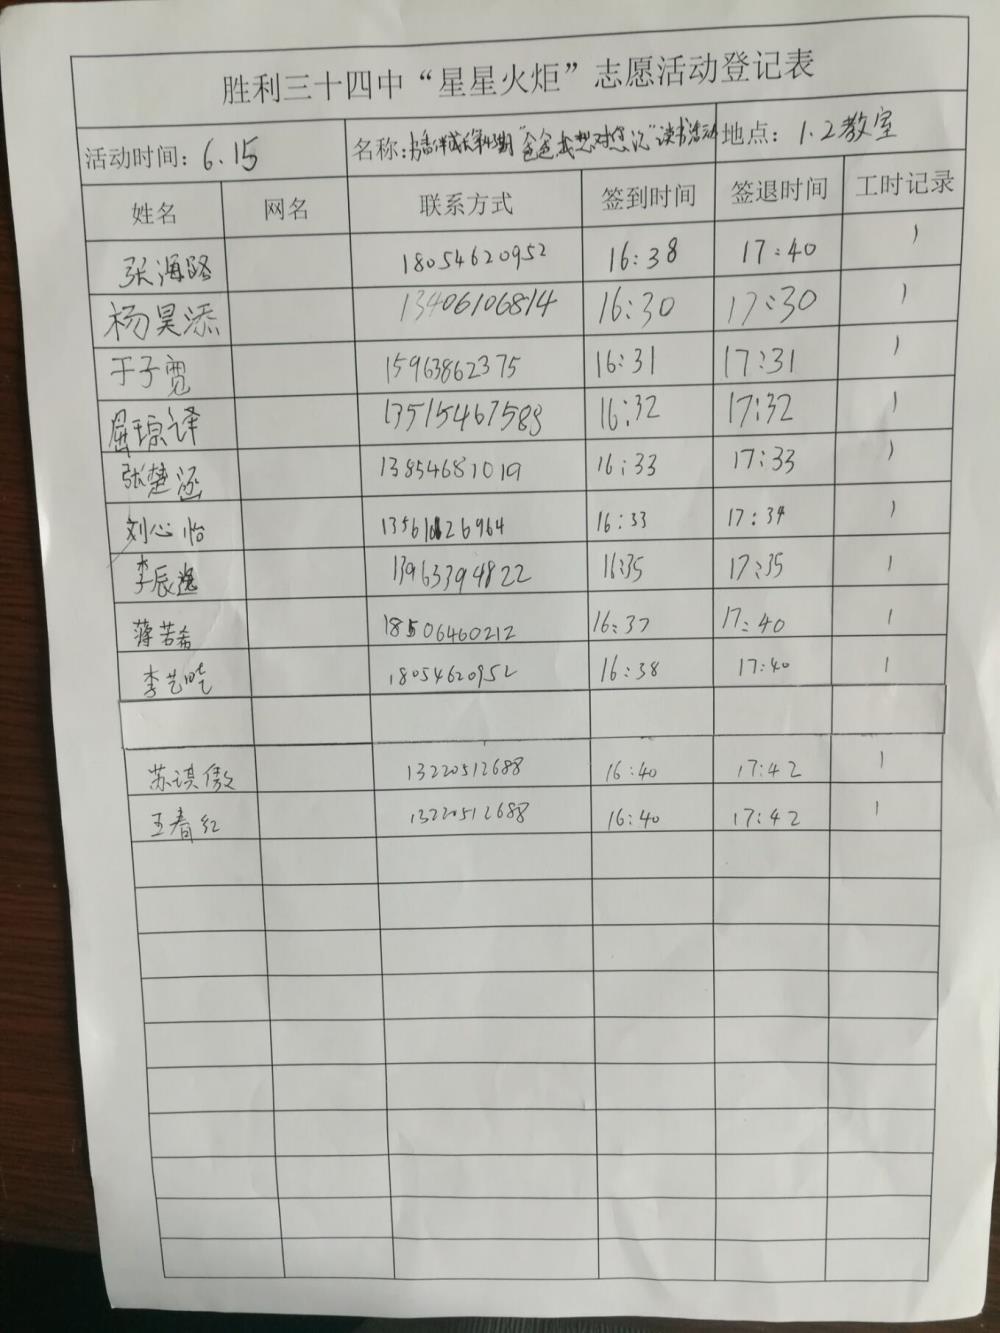 胜利三十四中“星星火炬”志愿活动登记表
活动时间：6.15 名称：书香伴成长第43期“爸爸,我想对您说”读书活动 地点：1.2教室
姓名 网名 联系方式 签到时间 签退时间 工时记录
张海路 18054620952 16:38 17:40 1
杨昊添 13406106814 16:30 17:30 1
于子宽 15963862375 16:31 17:31 1
屈琮译 13515467589 16:32 17:32 1
张楚涵 13854681019 16:33 17:33 1
刘心怡 16:33 17:34 1
李辰逸 13963394822 16:35 17:35 1
薄若希 18506460212 16:37 17:40 1
李艺 18054620952 16:38 17:40 1
苏琪傲 13220512688 16:40 17:42 1
王春红 13220512688 16:40 17:42 1